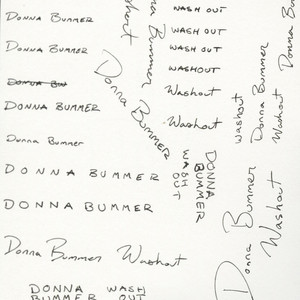 DONNA BUMMER
DONNA BUMMER
DONNA BUMMER
DONNA BUMMER
DONNA BUMMER
DONNA BUMMER
Donna Bummer Washout
DONNA WASH
BUMMER OUT
Washout
Donna Bummer
Donna Bummer
WASH OUT
WASH OUT
WASH OUT
WASHOUT
Washout
Washout
WASH
OUT
DONNA
BUMMER
washout
Donna Bummer
Washout
Donna Bummer
Donna Bummer
Washout